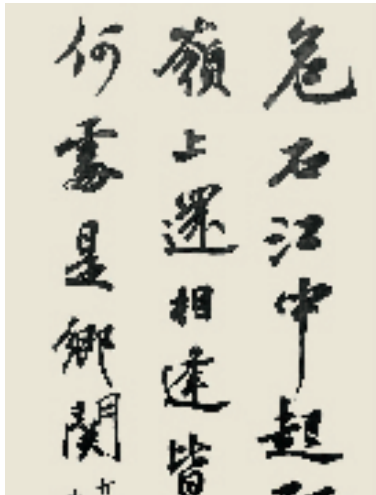 危石江中起
嶺上還相逢皆
何處是鄉関